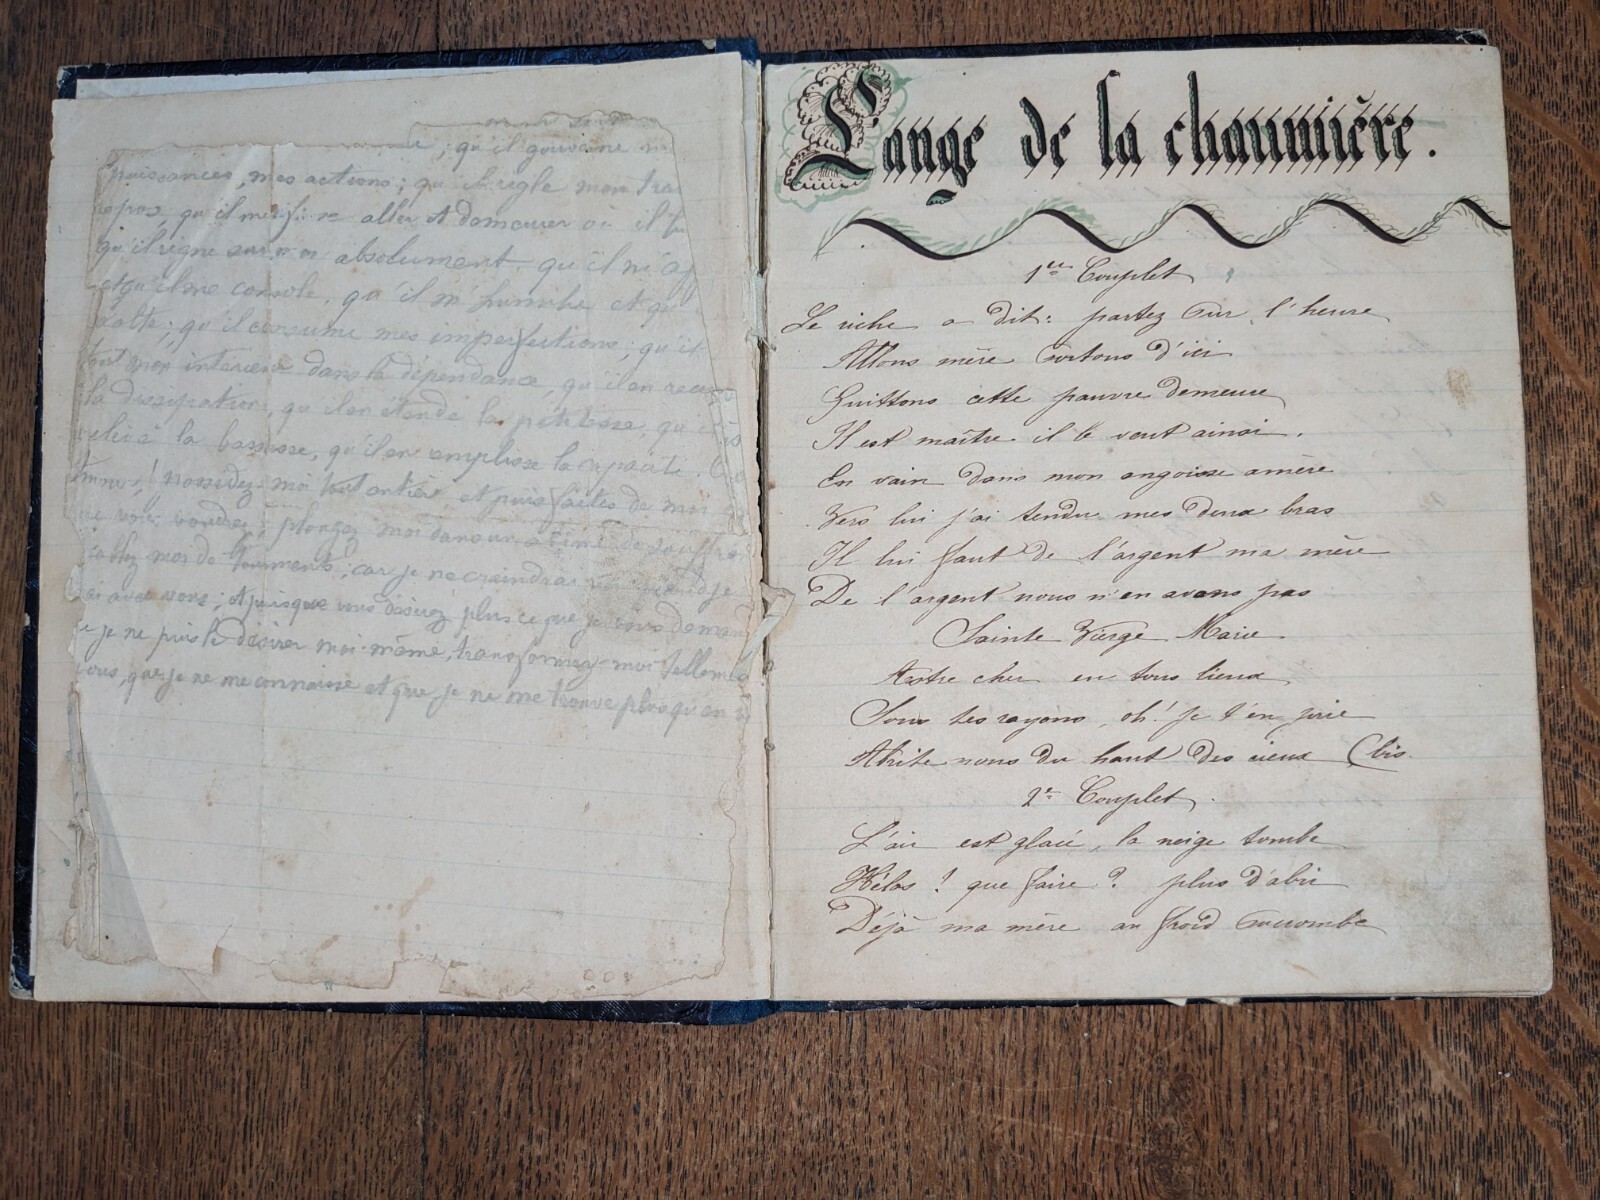 ; qu'il gouverne m
puissances, mes actions; qu'il règle mon tra
aller et demeurer où il
qu'il règne sur moi absolument. qu'il m'af
et qu'il me console, qu'il m'humilie et qu
qu'il consume mes imperfections; qu'il
tout mon intérieur dans la dépendance, qu'il en
la dissipation, qu'il en étende la petitesse, qu'il
la bassesse, qu'il en emplisse la capacité.
! possédez-moi tout entier, et puis faites de moi
vous voudrez; plongez moi dans un abîme de souffra
moi de tourments; car je ne craindrai quand je
ai avec vous; et puisque vous désirez plus ce que je vous demand
e je ne puis le désirer moi-même, transformez-moi tellement
vous, que je ne me connaisse et que je ne me trouve plus qu'en
L'ange de la chaumière.
1er Couplet
Le riche a dit: partez sur l'heure
Allons mère sortons d'ici
Quittons cette pauvre demeure
Il est maître il le veut ainsi.
En vain dans mon angoisse amère
Vers lui j'ai tendu mes deux bras
Il lui faut de l'argent ma mère
De l'argent nous n'en avons pas
Sainte Vierge Marie
Astre cher en tous lieux
Sous tes rayons, oh! je t'en prie
Abrite nous du haut des cieux (bis
2e Couplet.
L'air est glacé, la neige tombe
Hélas! que faire? plus d'abri
Déjà ma mère au froid succombe